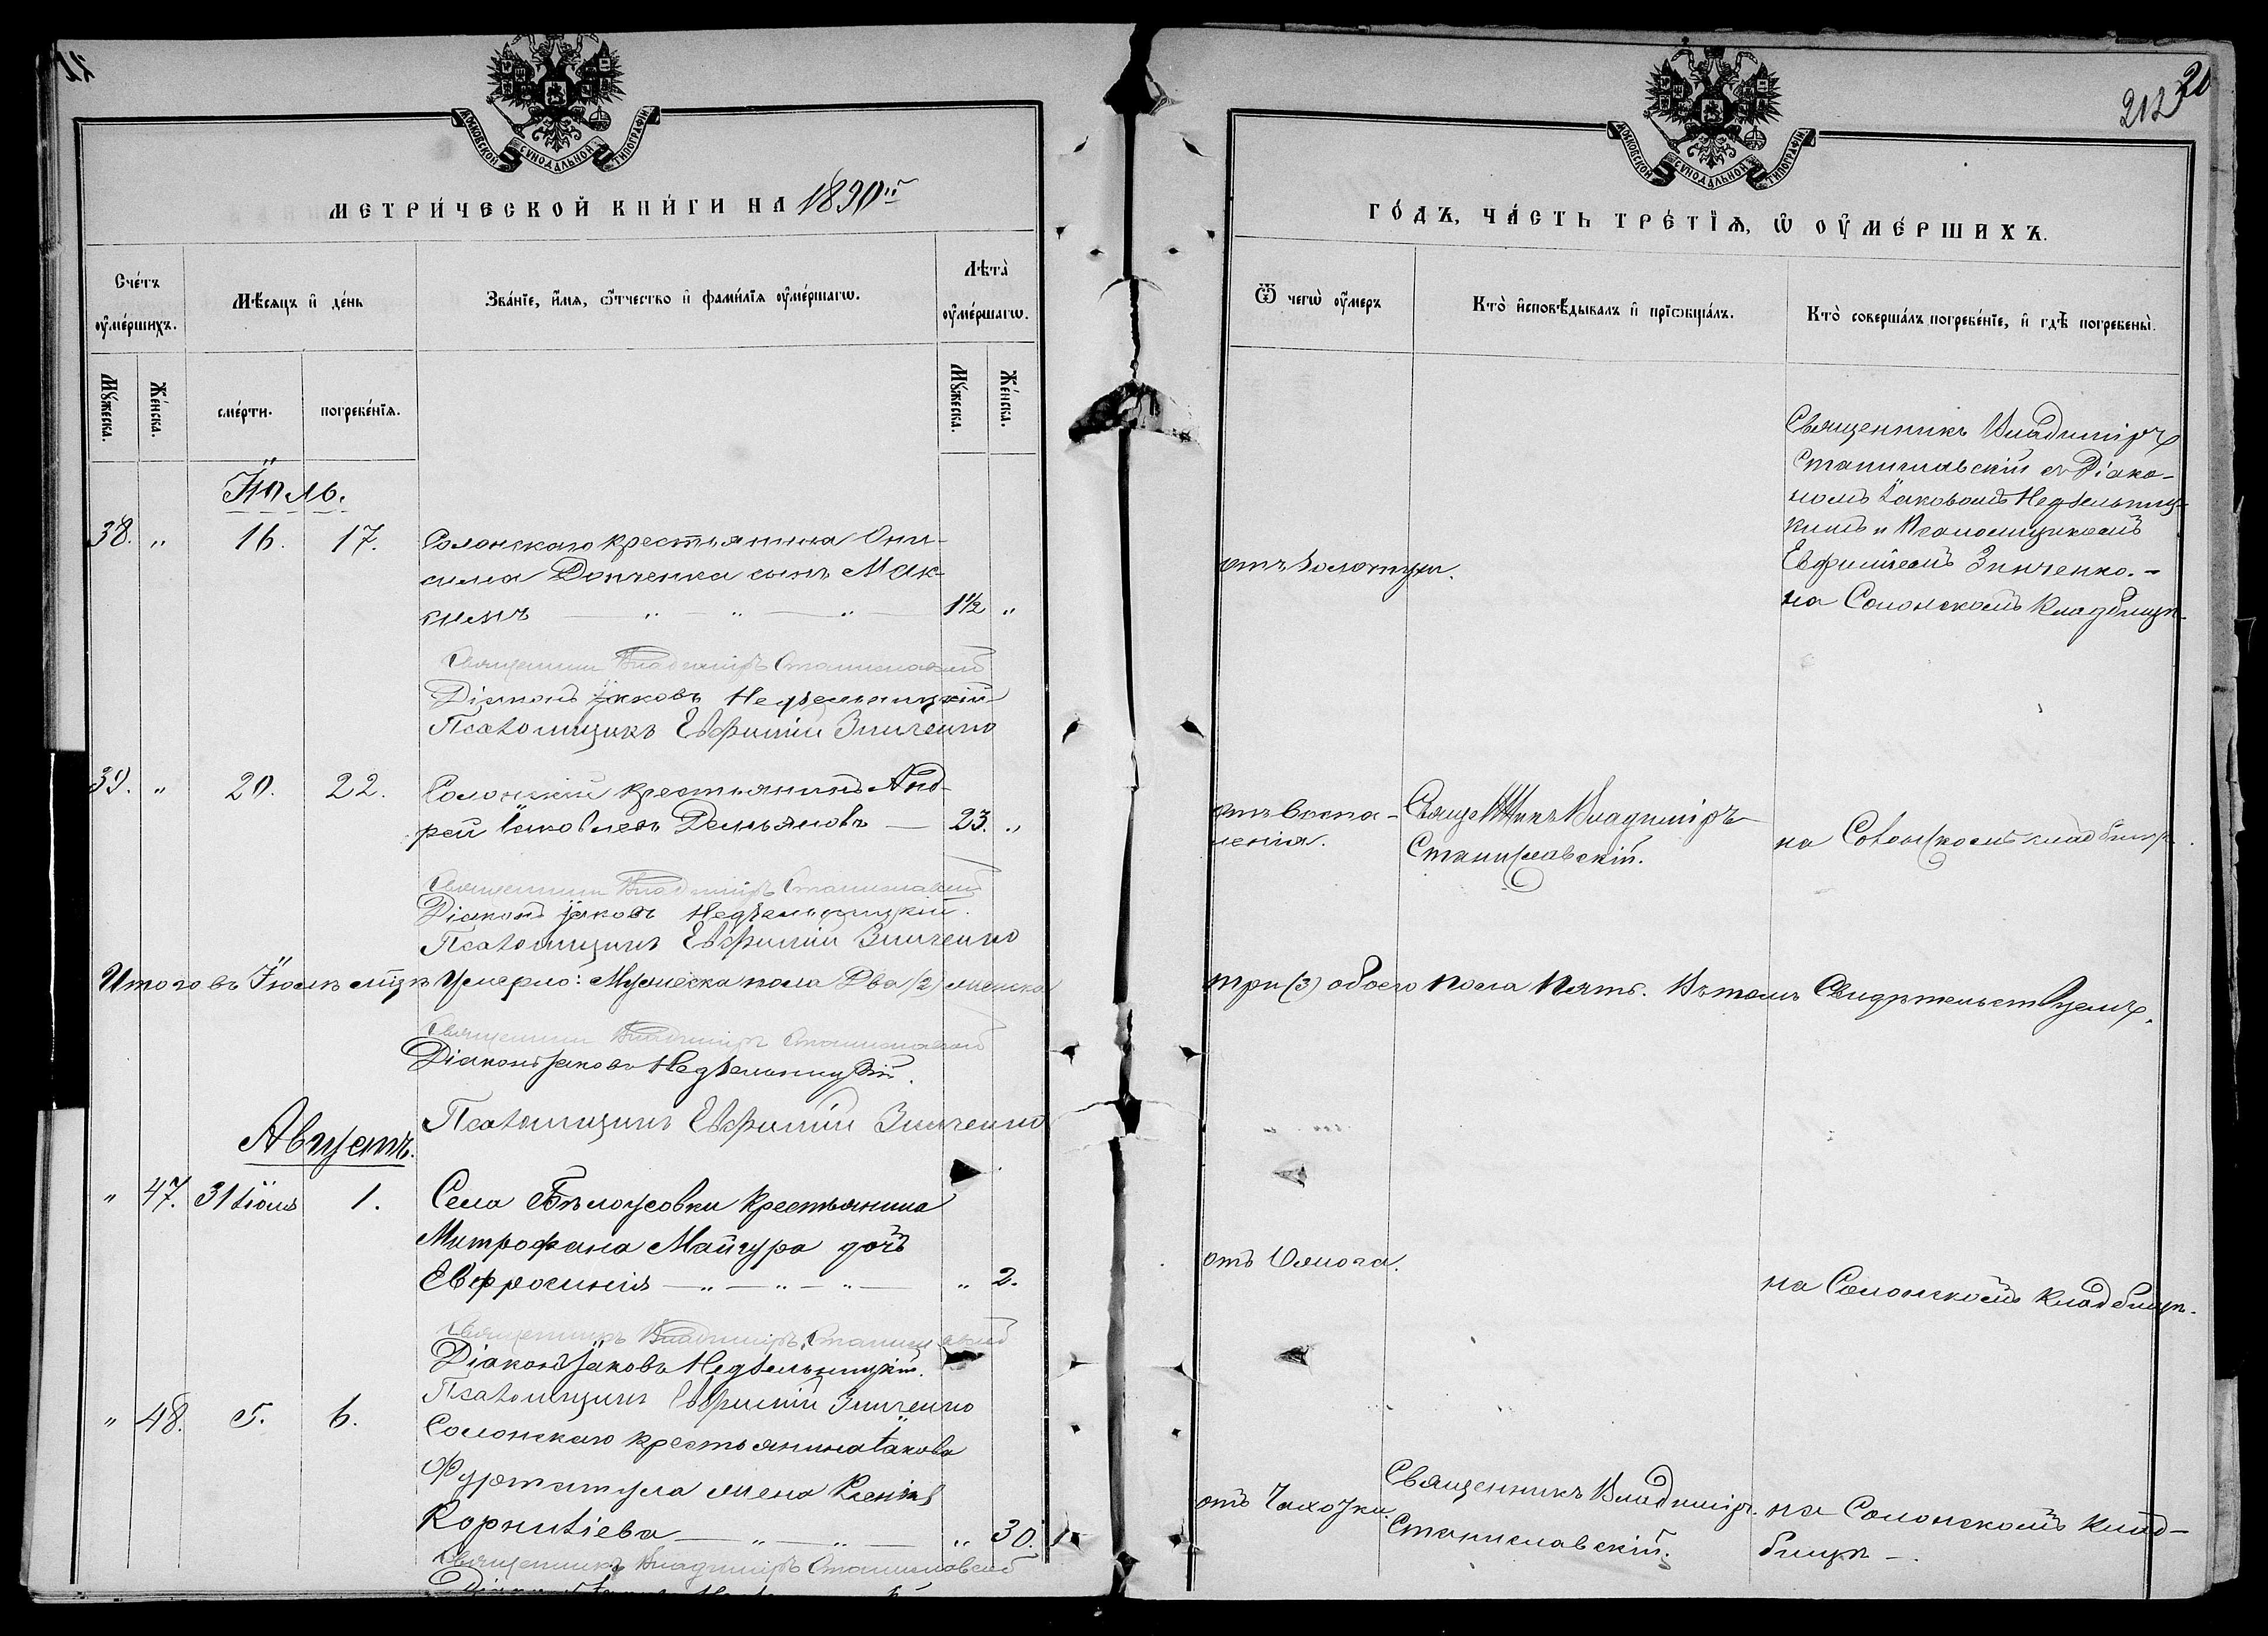 МОСКОВСКОЙ СѴНОДАЛЬНОЙ ТИПОГРАФІИ
МЕТРИ́ЧЕСКОЙ КНИ́ГИ НА 1890й
Сче́тъ оу҆ме́ршихъ.
Мѣ́сяцъ и҆ де́нь
Зва́нїе, и҆́мя, ѻ҆́тчество и҆ фами́лїя оу҆ме́ршагѡ.
Лѣта̀ оу҆ме́ршагѡ.
Мꙋ́жеска.
Же́нска.
сме́рти.
погребе́нїя.
Мꙋ́жеска.
Же́нска.
Іюль.
38. „ 16. 17. Солонскаго крестьянина Они-
сима Донченка сынъ Мак-
симъ — „ — „ — „ — 1½ „
Священникъ Владиміръ Станиславскій
Діаконъ Іаковъ Недѣльницкій
Псаломщикъ Евфимій Зинченко
39. „ 20. 22. Солонскій крестьянинъ Анд-
рей Іаковлевъ Демьяновъ — 23. „
Священникъ Владиміръ Станиславскій
Діаконъ Іаковъ Недѣльницкій.
Псаломщикъ Евфимій Зинченко
Итого въ Іюлѣ мцѣ умерло: Мужеска пола Два (2) женска
Священникъ Владиміръ Станиславскій
Діаконъ Іаковъ Недѣльницкій.
Псаломщикъ Евфимій Зинченко
Августъ.
„ 47. 31 Іюля 1. Села Бѣлоусовки крестьянина
Митрофана Майчура дочь
Евфросинія — „ — „ — „ — „ 2.
Священникъ Владиміръ Станиславскій
Діаконъ Іаковъ Недѣльницкій.
Псаломщикъ Евфимій Зинченко
„ 48. 5. 6. Солонскаго крестьянина Іакова
жена Ксенія
Корнилієва — „ — „ — „ 30.
Священникъ Владиміръ Станиславскій
212
20
МОСКОВСКОЙ СѴНОДАЛЬНОЙ ТИПОГРАФІИ
ГО́ДЪ, ЧА́СТЬ ТРЕ́ТЇѦ, Ѡ҆ ОУ҆МЕ́РШИХЪ.
Ѿ чегѡ̀ оу҆́меръ
Кто̀ и҆сповѣ́дывалъ и҆ прїѡбща́лъ.
Кто̀ соверша́лъ погребе́нїе, и҆ гдѣ̀ погребены̀.
Священникъ Владиміръ
Станиславскій съ Діако-
номъ Іаковомъ Недѣльниц-
кимъ и Псаломщикомъ
Евфиміемъ Зинченко. –
на Солонскомъ Кладбищѣ.
отъ золотухи.
отъ воспа-
ленія.
Священникъ Владиміръ
Станиславскій.
на Солонскомъ кладбищѣ.
три (3) обоего пола пять. Въ томъ Свидѣтельствуемъ.
отъ
на Солонскомъ Кладбищѣ.
отъ Чахотки.
Священникъ Владиміръ
Станиславскій.
на Солонскомъ Клад-
бищѣ –.